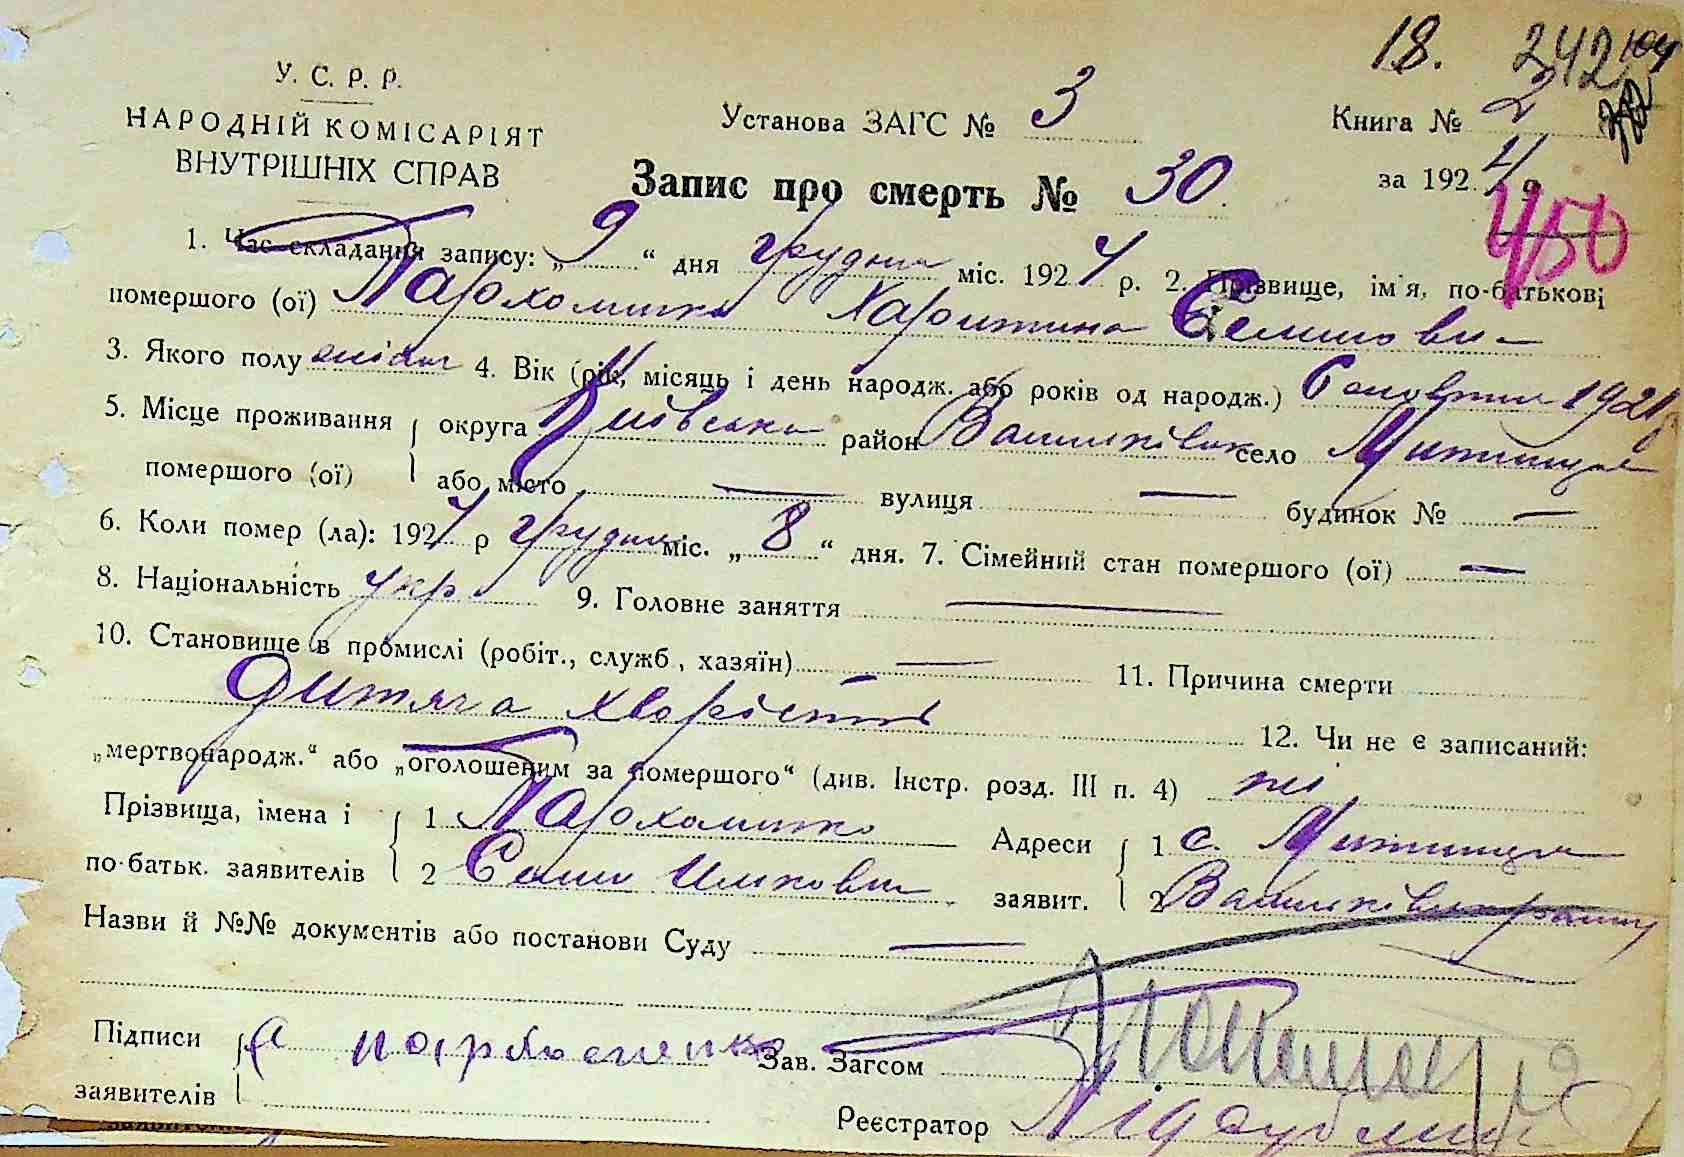 18. 242
У. С. Р. Р.
НАРОДНІЙ КОМІСАРІЯТ
ВНУТРІШНІХ СПРАВ
Установа ЗАГС № 3
Книга № 2
Запис про смерть № 30.
за 1924 р.
450
1. Час складання запису: „9“ дня грудня міс. 1924 р. 2. Прізвище, ім'я, по-батькові
помершого (ої) Пархоменко Харитина Семенові-
3. Якого полу жіноч 4. Вік (рік, місяць і день народж. або років од народж.) 6 жовтня 1924 р
5. Місце проживання округа Київська район Васильків село Митниця
помершого (ої) або місто — вулиця — будинок № —
6. Коли помер (ла): 1924 р грудня міс. „8“ дня. 7. Сімейний стан помершого (ої) —
8. Національність укр 9. Головне заняття —
10. Становище в промислі (робіт., служб., хазяїн) — 11. Причина смерти
дитяча хворість 12. Чи не є записаний:
„мертвонародж.“ або „оголошеним за помершого“ (див. Інстр. розд. III п. 4) ні
Прізвища, імена і 1 Пархоменко Адреси 1 с. Митниця
по-батьк. заявителів 2 Семен заявит. 2
Назви й №№ документів або постанови Суду —
Підписи С Пархоменко Зав. Загсом
заявителів
Реєстратор